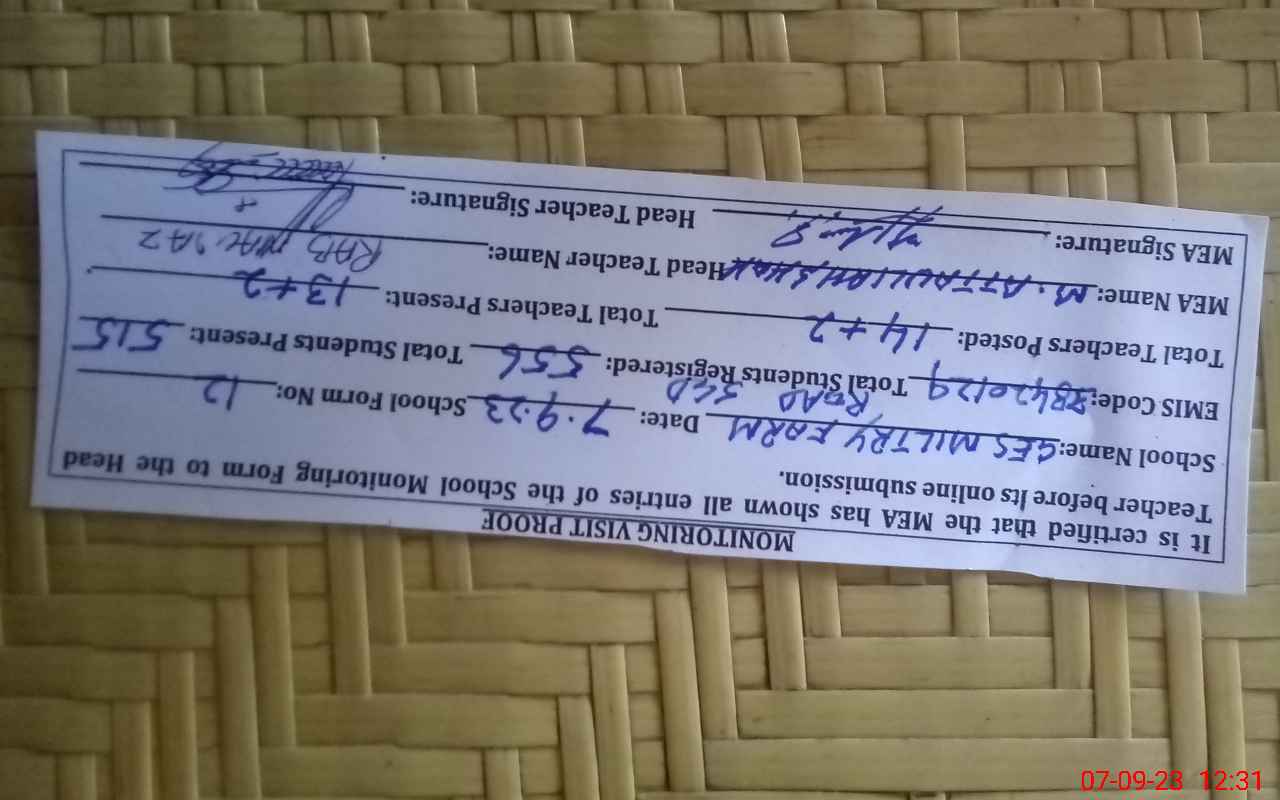 MONITORING VISIT PROOF
It is certified that the MEA has shown all entries of the School Monitoring Form to the Head
Teacher before its online submission.
School Name: GES MILTRY FARM Date: 7.9.23 School Form No: 12
ROAD SGD
EMIS Code: 38420129 Total Students Registered: 556 Total Students Present: 515
Total Teachers Posted: 14+2 Total Teachers Present: 13+2
MEA Name: M. ATTAULLAH SHAH Head Teacher Name: RAB
MEA Signature: Head Teacher Signature:
07-09-23 12:31